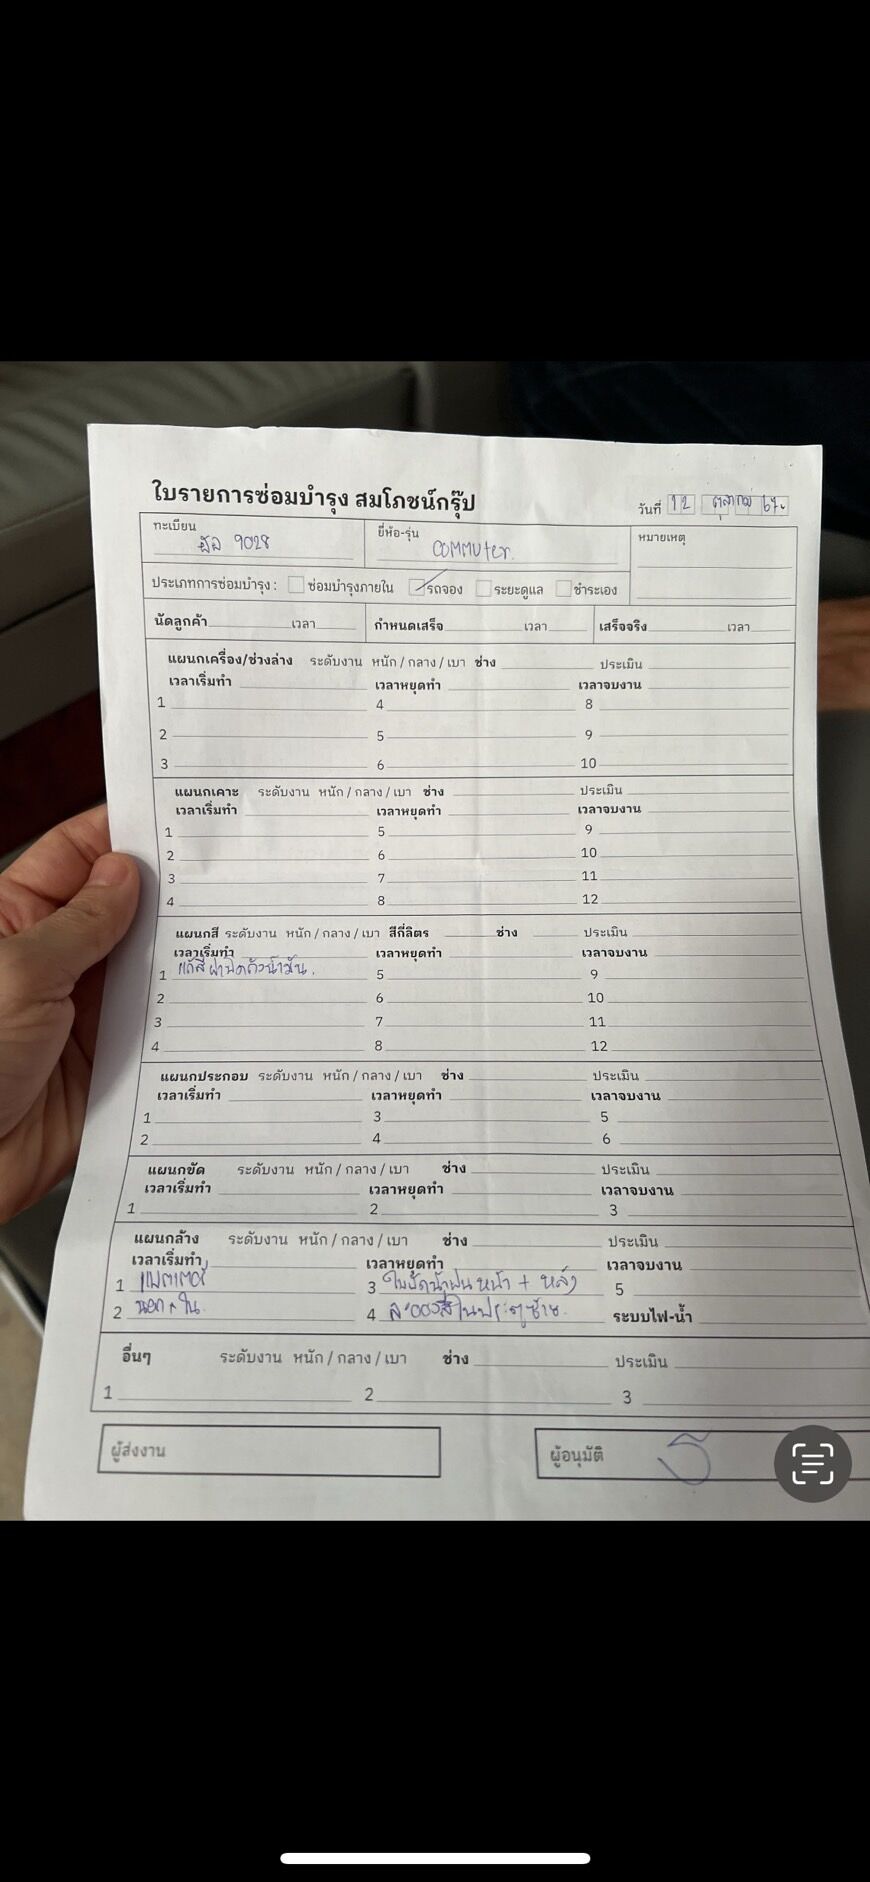 ใบรายการซ่อมบำรุง สมโภชน์กรุ๊ป
วันที่ 12 ตุลาคม 67
ทะเบียน 9028 ยี่ห้อ-รุ่น commuter. หมายเหตุ
ประเภทการซ่อมบำรุง : ซ่อมบำรุงภายใน รถจอง ระยะดูแล ชำระเอง
นัดลูกค้า เวลา กำหนดเสร็จ เวลา เสร็จจริง เวลา
แผนกเครื่อง/ช่วงล่าง ระดับงาน หนัก / กลาง / เบา ช่าง ประเมิน
เวลาเริ่มทำ เวลาหยุดทำ เวลาจบงาน
1 4 8
2 5 9
3 6 10
แผนกเคาะ ระดับงาน หนัก / กลาง / เบา ช่าง ประเมิน
เวลาเริ่มทำ เวลาหยุดทำ เวลาจบงาน
1 5 9
2 6 10
3 7 11
4 8 12
แผนกสี ระดับงาน หนัก / กลาง / เบา สีกี่ลิตร ช่าง ประเมิน
เวลาเริ่มทำ เวลาหยุดทำ เวลาจบงาน
1 แก้สีฝาปิดถังน้ำมัน. 5 9
2 6 10
3 7 11
4 8 12
แผนกประกอบ ระดับงาน หนัก / กลาง / เบา ช่าง ประเมิน
เวลาเริ่มทำ เวลาหยุดทำ เวลาจบงาน
1 3 5
2 4 6
แผนกขัด ระดับงาน หนัก / กลาง / เบา ช่าง ประเมิน
เวลาเริ่มทำ เวลาหยุดทำ เวลาจบงาน
1 2 3
แผนกล้าง ระดับงาน หนัก / กลาง / เบา ช่าง ประเมิน
เวลาเริ่มทำ เวลาหยุดทำ เวลาจบงาน
1 แบตเตอรี่ 3 ใบปัดน้ำฝน หน้า + หลัง 5
2 4 ละอองสีในประตูซ้าย. ระบบไฟ-น้ำ
อื่นๆ ระดับงาน หนัก / กลาง / เบา ช่าง ประเมิน
1 2 3
ผู้ส่งงาน ผู้อนุมัติ